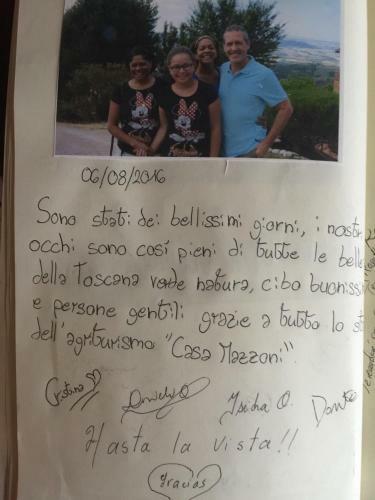 06/08/2016
Sono stati dei bellissimi giorni, i nostr
occhi sono così pieni di tutte le belle
della Toscana verde natura, cibo buonissi
e persone gentili grazie a tutto lo st
dell'agriturismo "Casa Mazzoni".
Cristina
Ysidra O.
Hasta la vista!!
Gracias